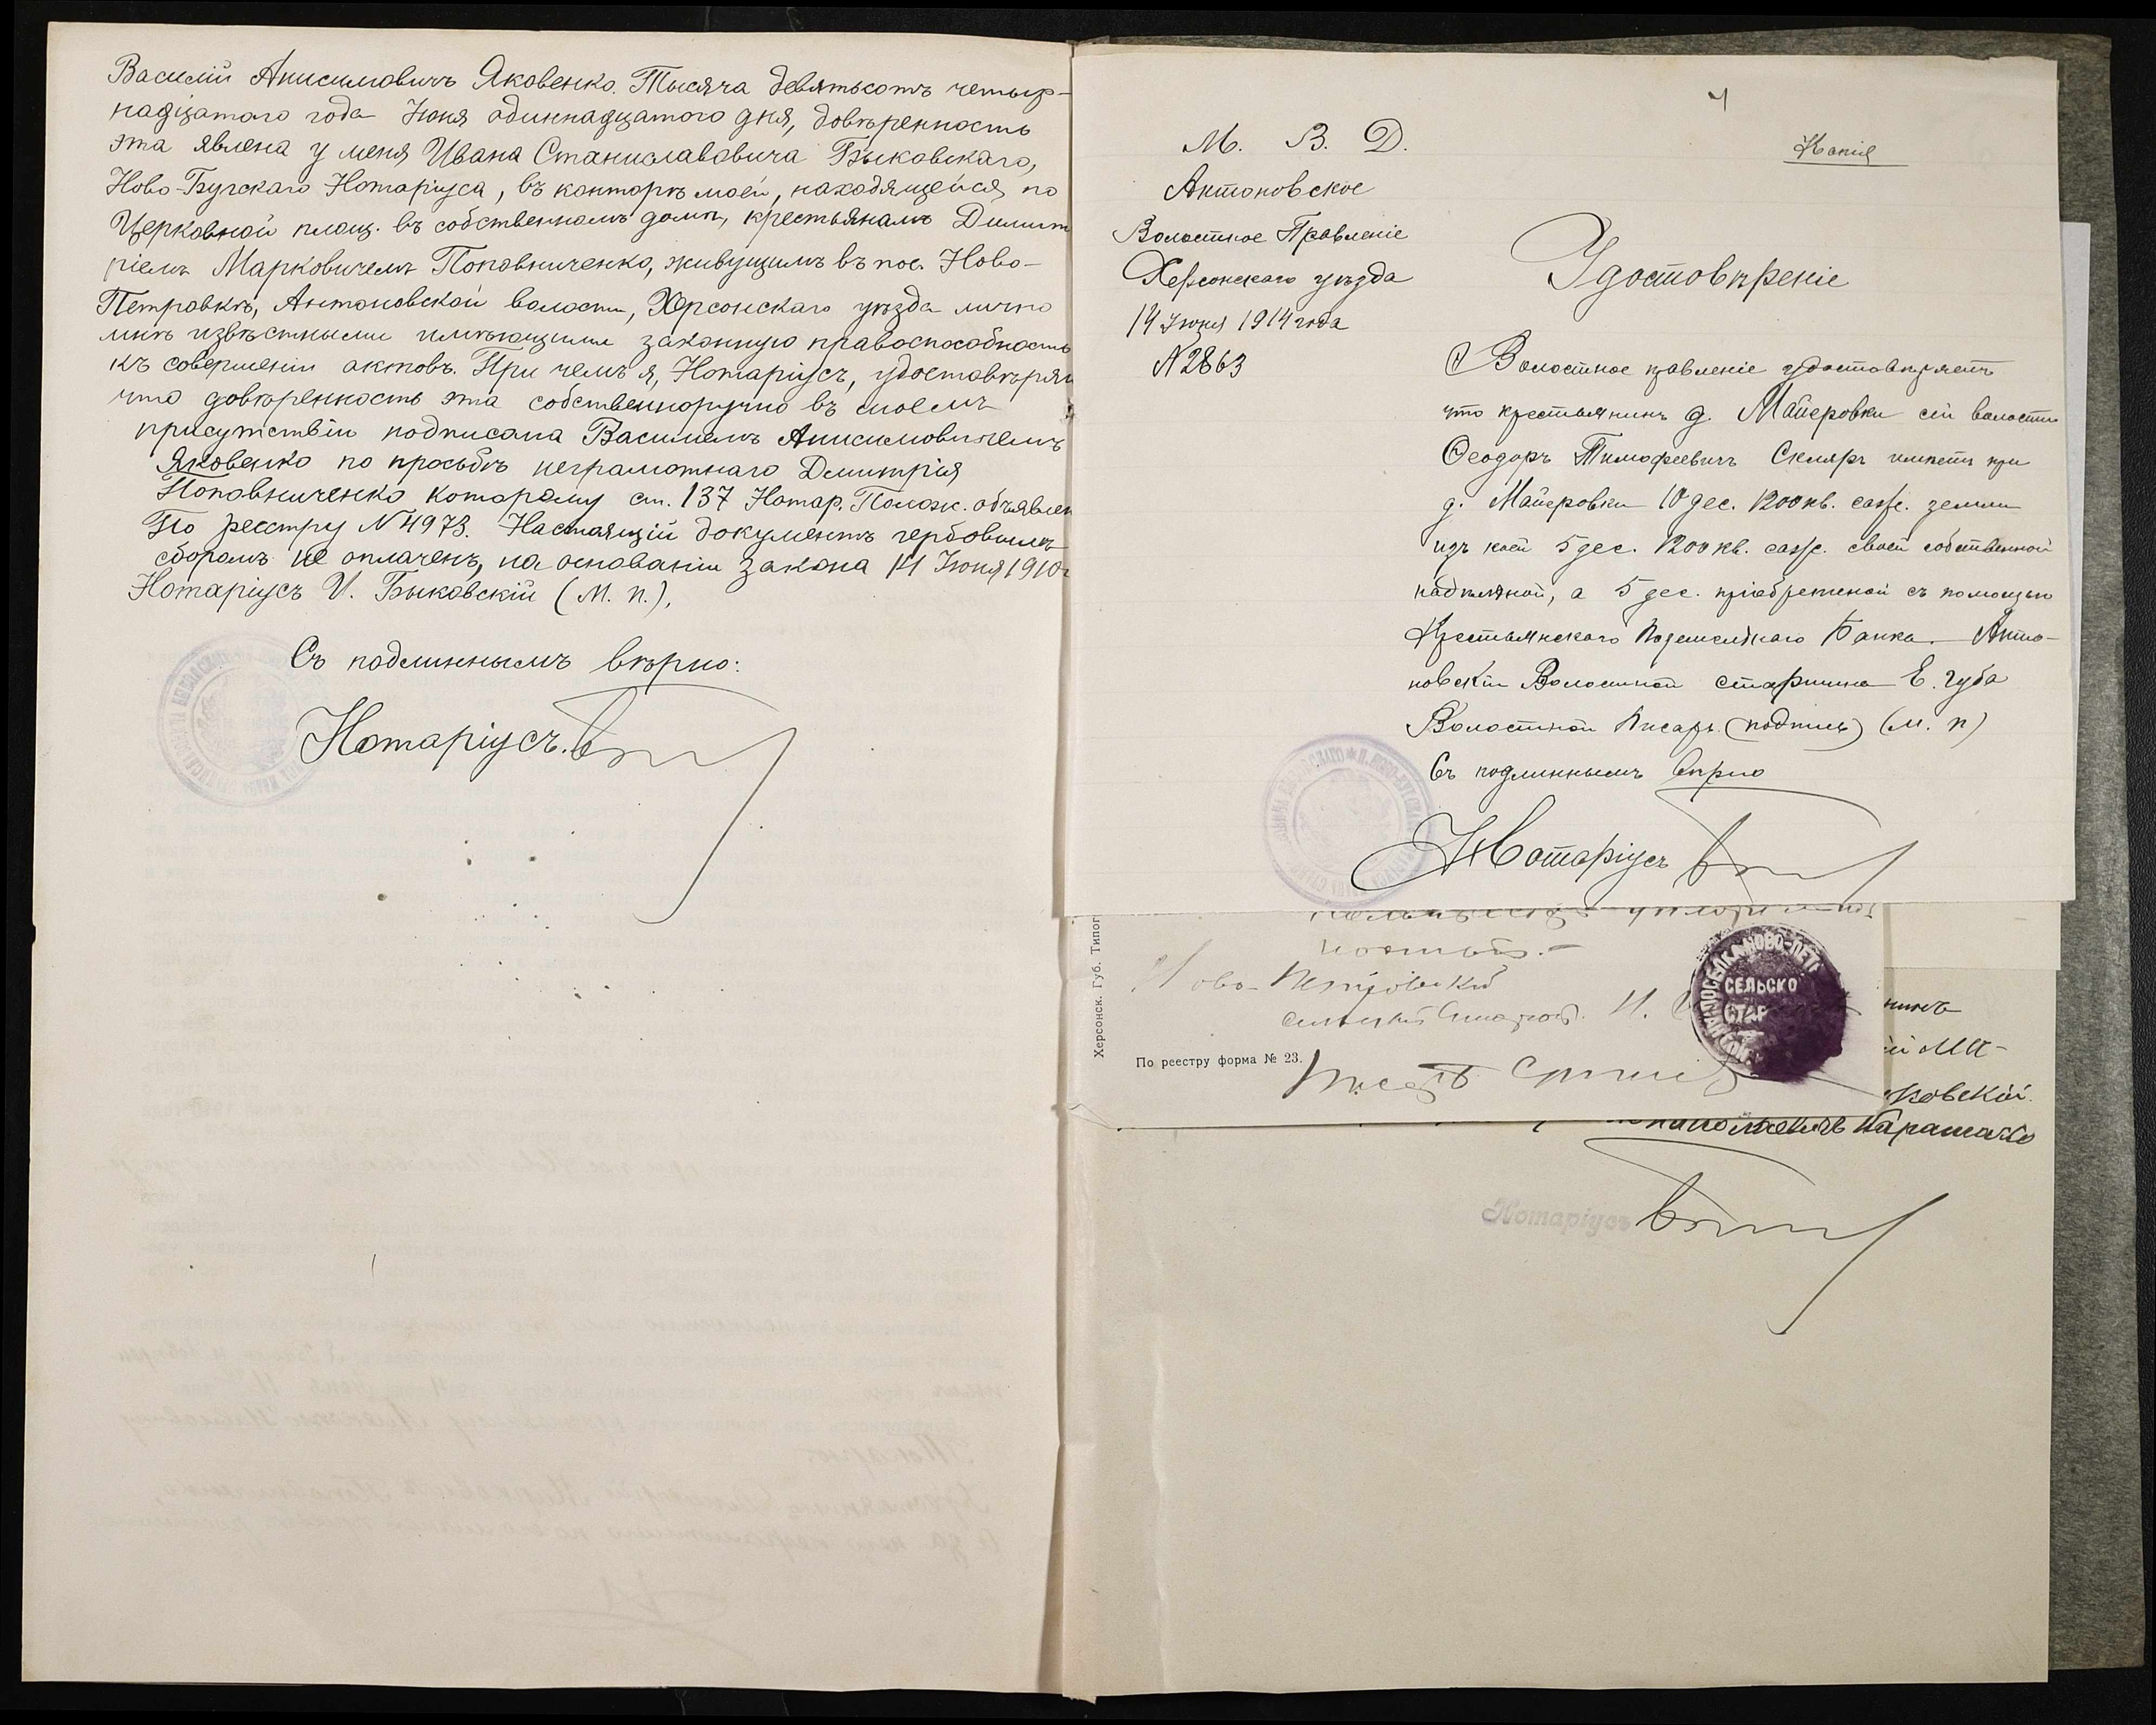 Василій Анисимовичъ Яковенко. Тысяча девятьсотъ четыр-
надцатаго года Іюня одиннадцатаго дня, довѣренность
эта явлена у меня Ивана Станиславовича Быковскаго,
Ново-Бугскаго Нотаріуса, въ конторѣ моей, находящейся по
Церковной площ. въ собственномъ домѣ, крестьяниномъ Димит
ріемъ Марковичемъ Поповниченко, живущимъ въ пос. Ново-
Петровкѣ, Антоновской волости, Херсонскаго уѣзда лично
мнѣ извѣстнымъ имѣющимъ законную правоспособность
къ совершенію актовъ. При чемъ я, Нотаріусъ, удостовѣряю
что довѣренность эта собственноручно въ моемъ
присутствіи подписана Василіемъ Анисимовичемъ
Яковенко по просьбѣ неграмотнаго Дмитрія
Поповниченко которому ст. 137 Нотар. Полож. объявлен
По реестру № 4973. Настоящій документъ гербовымъ
сборомъ не оплаченъ, на основаніи закона 14 Іюня 1910 г
Нотаріусъ И. Быковскій (М. п.),
Съ подлиннымъ вѣрно:
Нотаріусъ
4
Копія
М. В. Д.
Антоновское
Волостное Правленіе
Херсонскаго уѣзда
14 Іюня 1914 года
№ 2863
Удостовѣреніе
Волостное правленіе удостовѣряетъ
что крестьянинъ д. Майеровки сей волости
Ѳеодоръ Тимофеевичъ Скляръ имѣетъ при
д. Майеровки 10 дес. 1200 кв. саж. земли
изъ коей 5 дес. 1200 кв. саж. своей собственной
надѣльной, а 5 дес. пріобретеной съ помощью
Крестьянскаго Поземельнаго Банка. Анто-
новскій Волостной старшина Е. Губа
Волостной Писарь (подпись) (М. п)
Съ подлиннымъ вѣрно
Нотаріусъ
Ново-Петровскій
сельскій Староста И.
СЕЛЬСКО
СТАР
Херсонск. Губ. Типог
По реестру форма № 23.
Писарь
ковскій.
Нотаріусъ